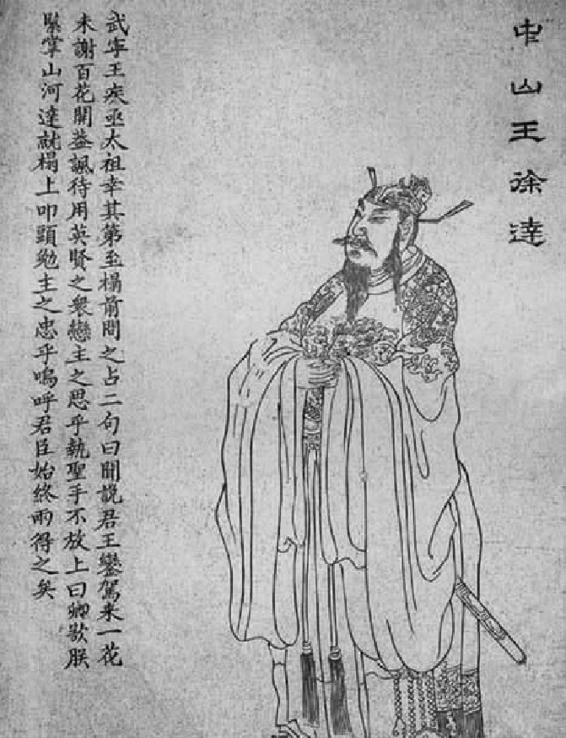 中山王徐達
武寧王疾亟太祖幸其第至榻前問之占二句曰聞說君王鑾駕來一花
未謝百花開蓋諷待用英賢之衆戀主之思乎執聖手不放上曰卿欲朕
緊掌山河達就榻上叩頭勉主之忠乎嗚呼君臣始終兩得之矣